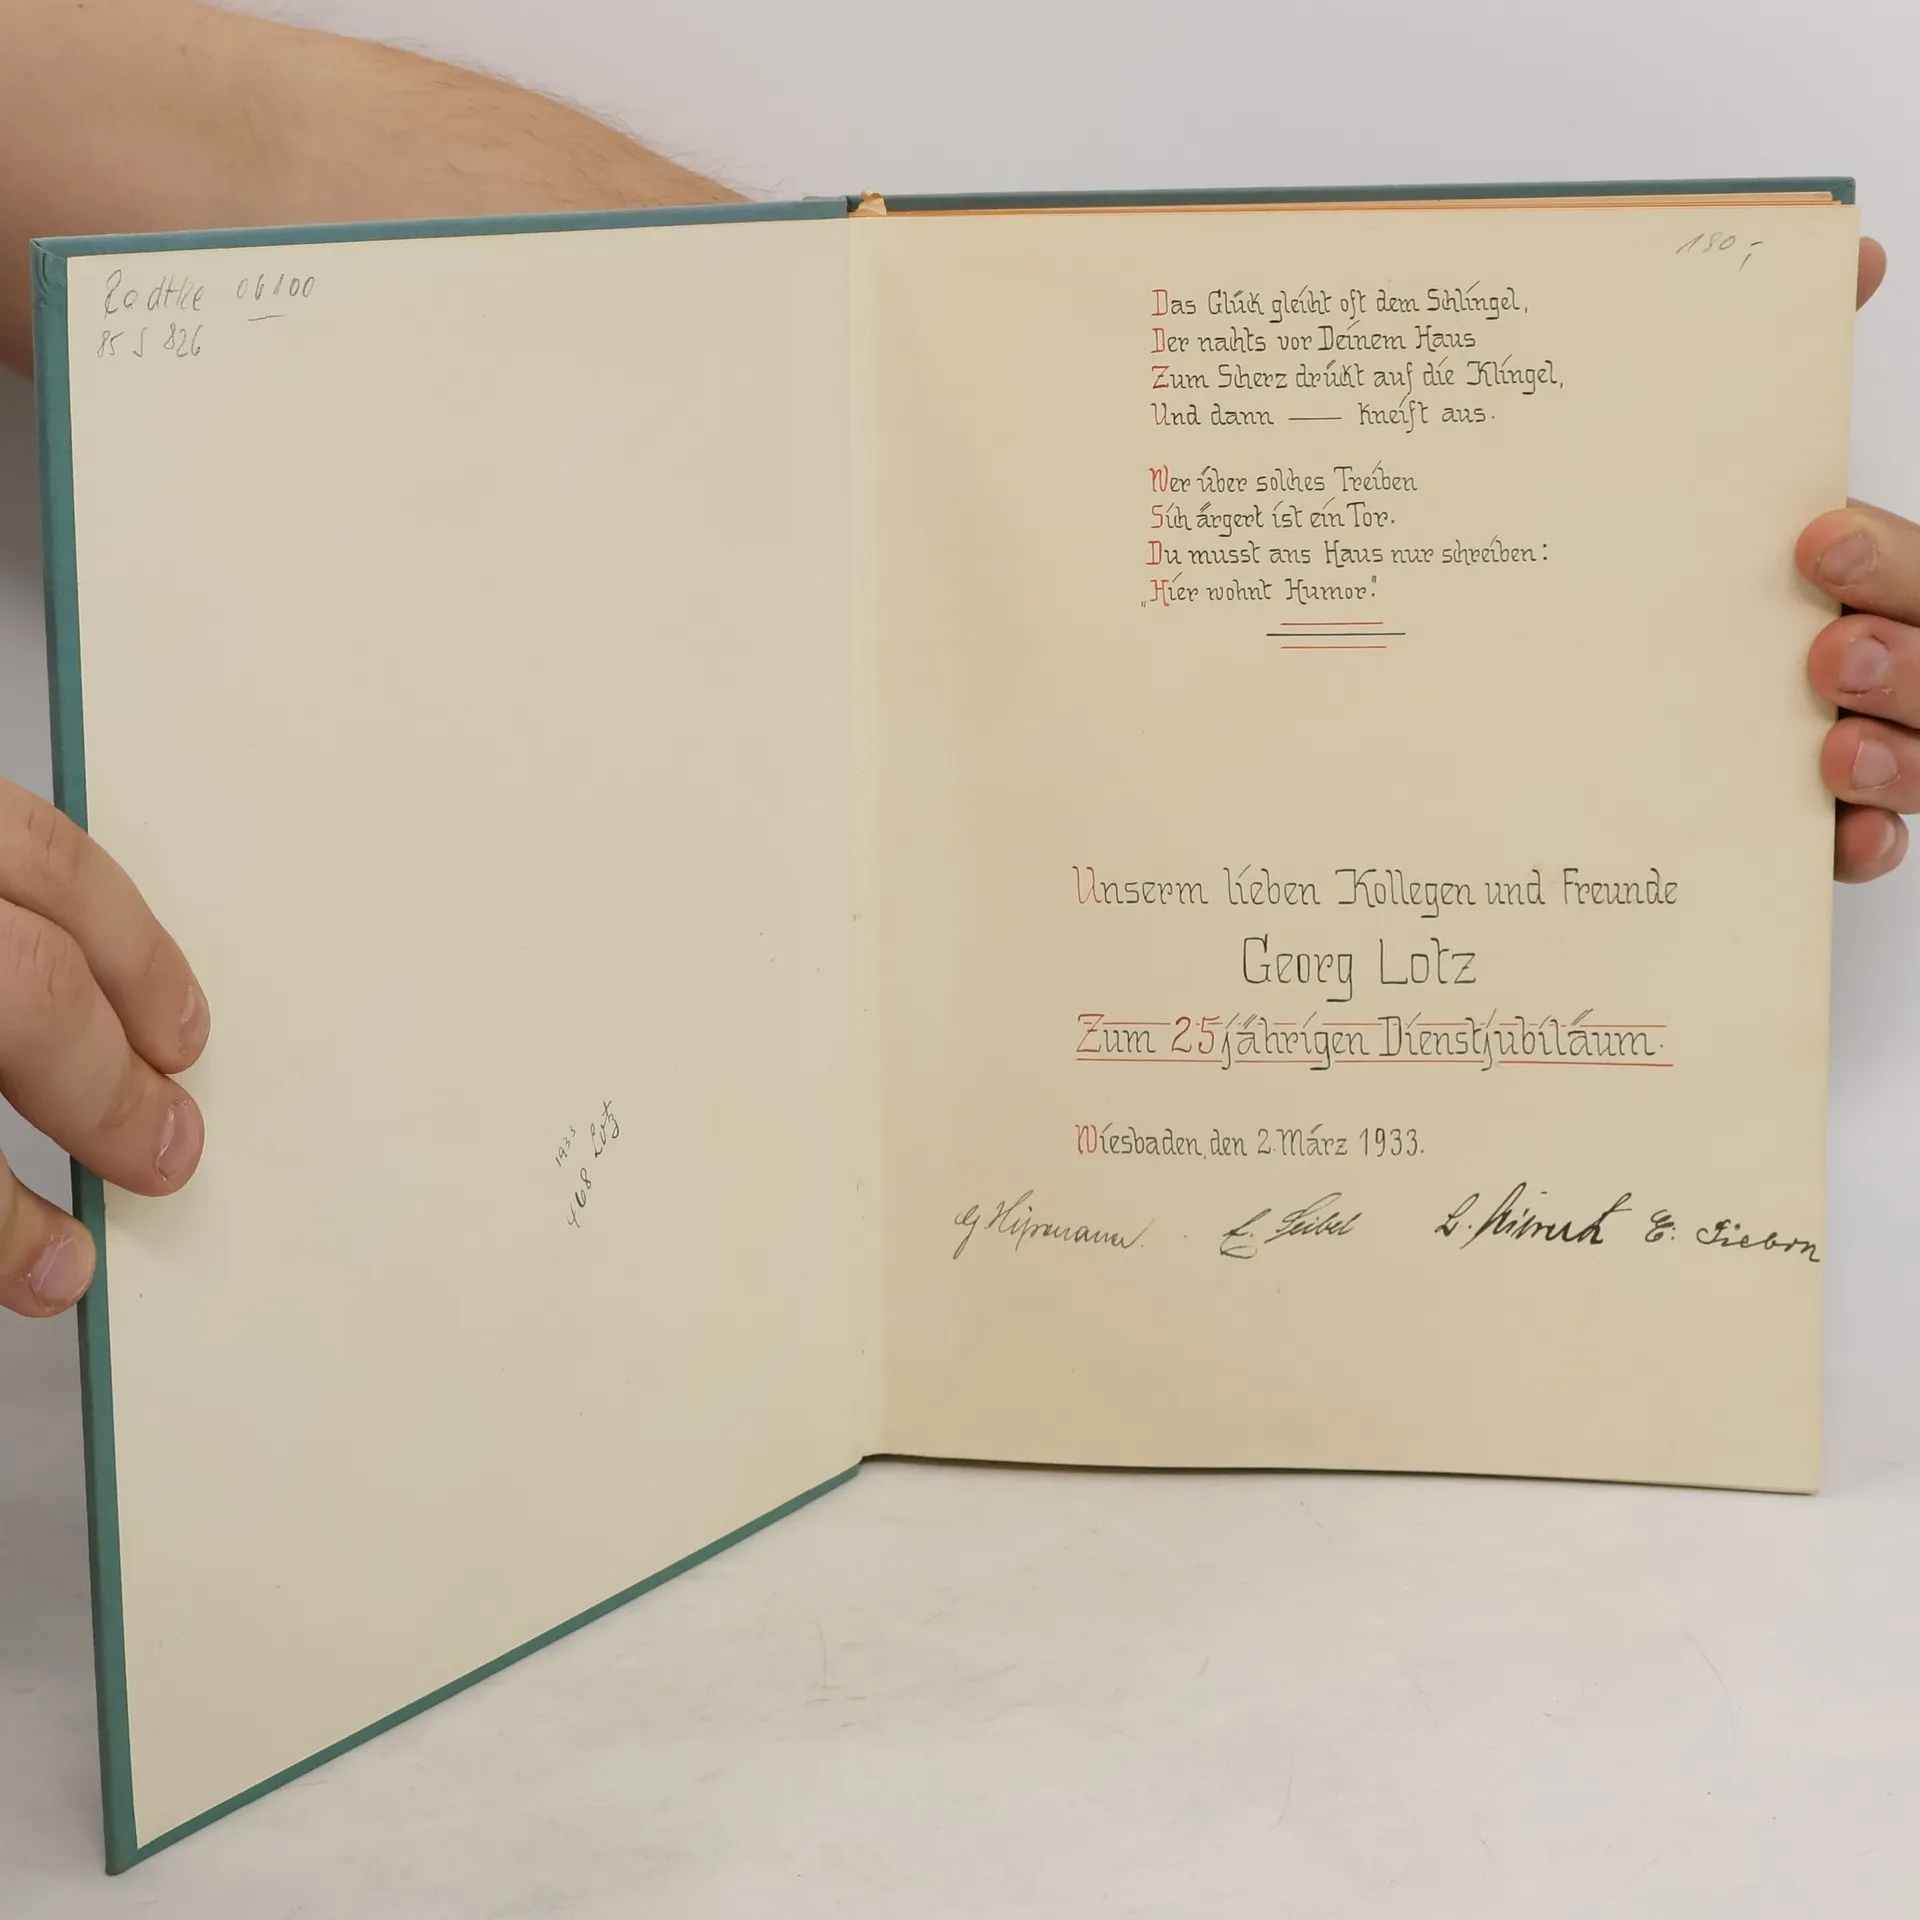 Radtke 06100
85 S 826
1933
468 Lotz
180,-
Das Glück gleicht oft dem Schlingel,
Der nachts vor Deinem Haus
Zum Scherz drückt auf die Klingel,
Und dann — kneift aus.
Wer über solches Treiben
Sich ärgert ist ein Tor.
Du musst ans Haus nur schreiben:
„Hier wohnt Humor."
Unserm lieben Kollegen und Freunde
Georg Lotz
Zum 25jährigen Dienstjubiläum.
Wiesbaden, den 2. März 1933.
E. Seibel E. Siebon